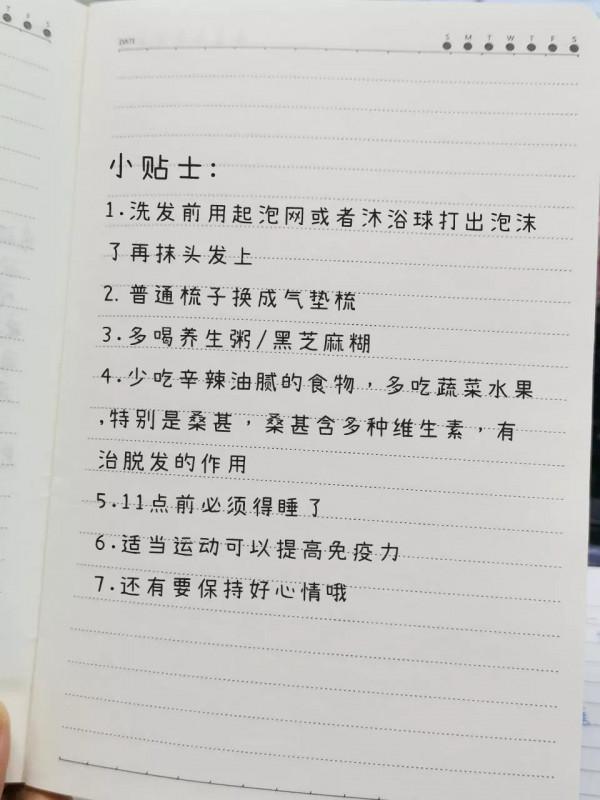 T F S
DATE
S M T W T F S
小贴士:
1.洗发前用起泡网或者沐浴球打出泡沫
了再抹头发上
2. 普通梳子换成气垫梳
3.多喝养生粥/黑芝麻糊
4.少吃辛辣油腻的食物，多吃蔬菜水果
,特别是桑葚，桑葚含多种维生素，有
治脱发的作用
5.11点前必须得睡了
6.适当运动可以提高免疫力
7.还有要保持好心情哦